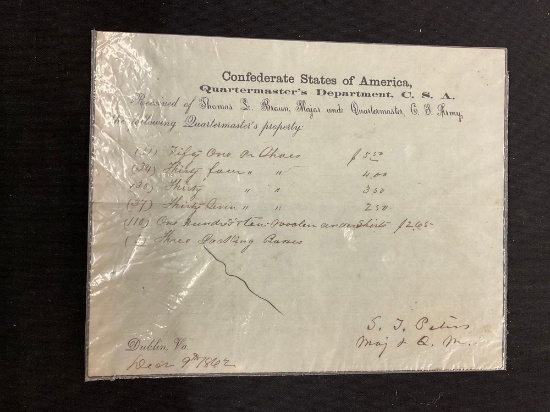 Confederate States of America,
Quartermaster's Department, C. S. A.
Received of Thomas L. Broun, Major and Quartermaster, C. S. Army,
the following Quartermaster's property:
(51) Fifty One Pr Shoes $5.50
(34) Thirty four " " 4.00
(30) Thirty " " 3.00
(37) Thirty Seven " " 2.50
(110) One hundred & ten Woolen under Shirts $2.65
(3) Three Boxes
S. T. Peters
Maj & Q. M.
Dublin, Va.
Decr 9th 1862